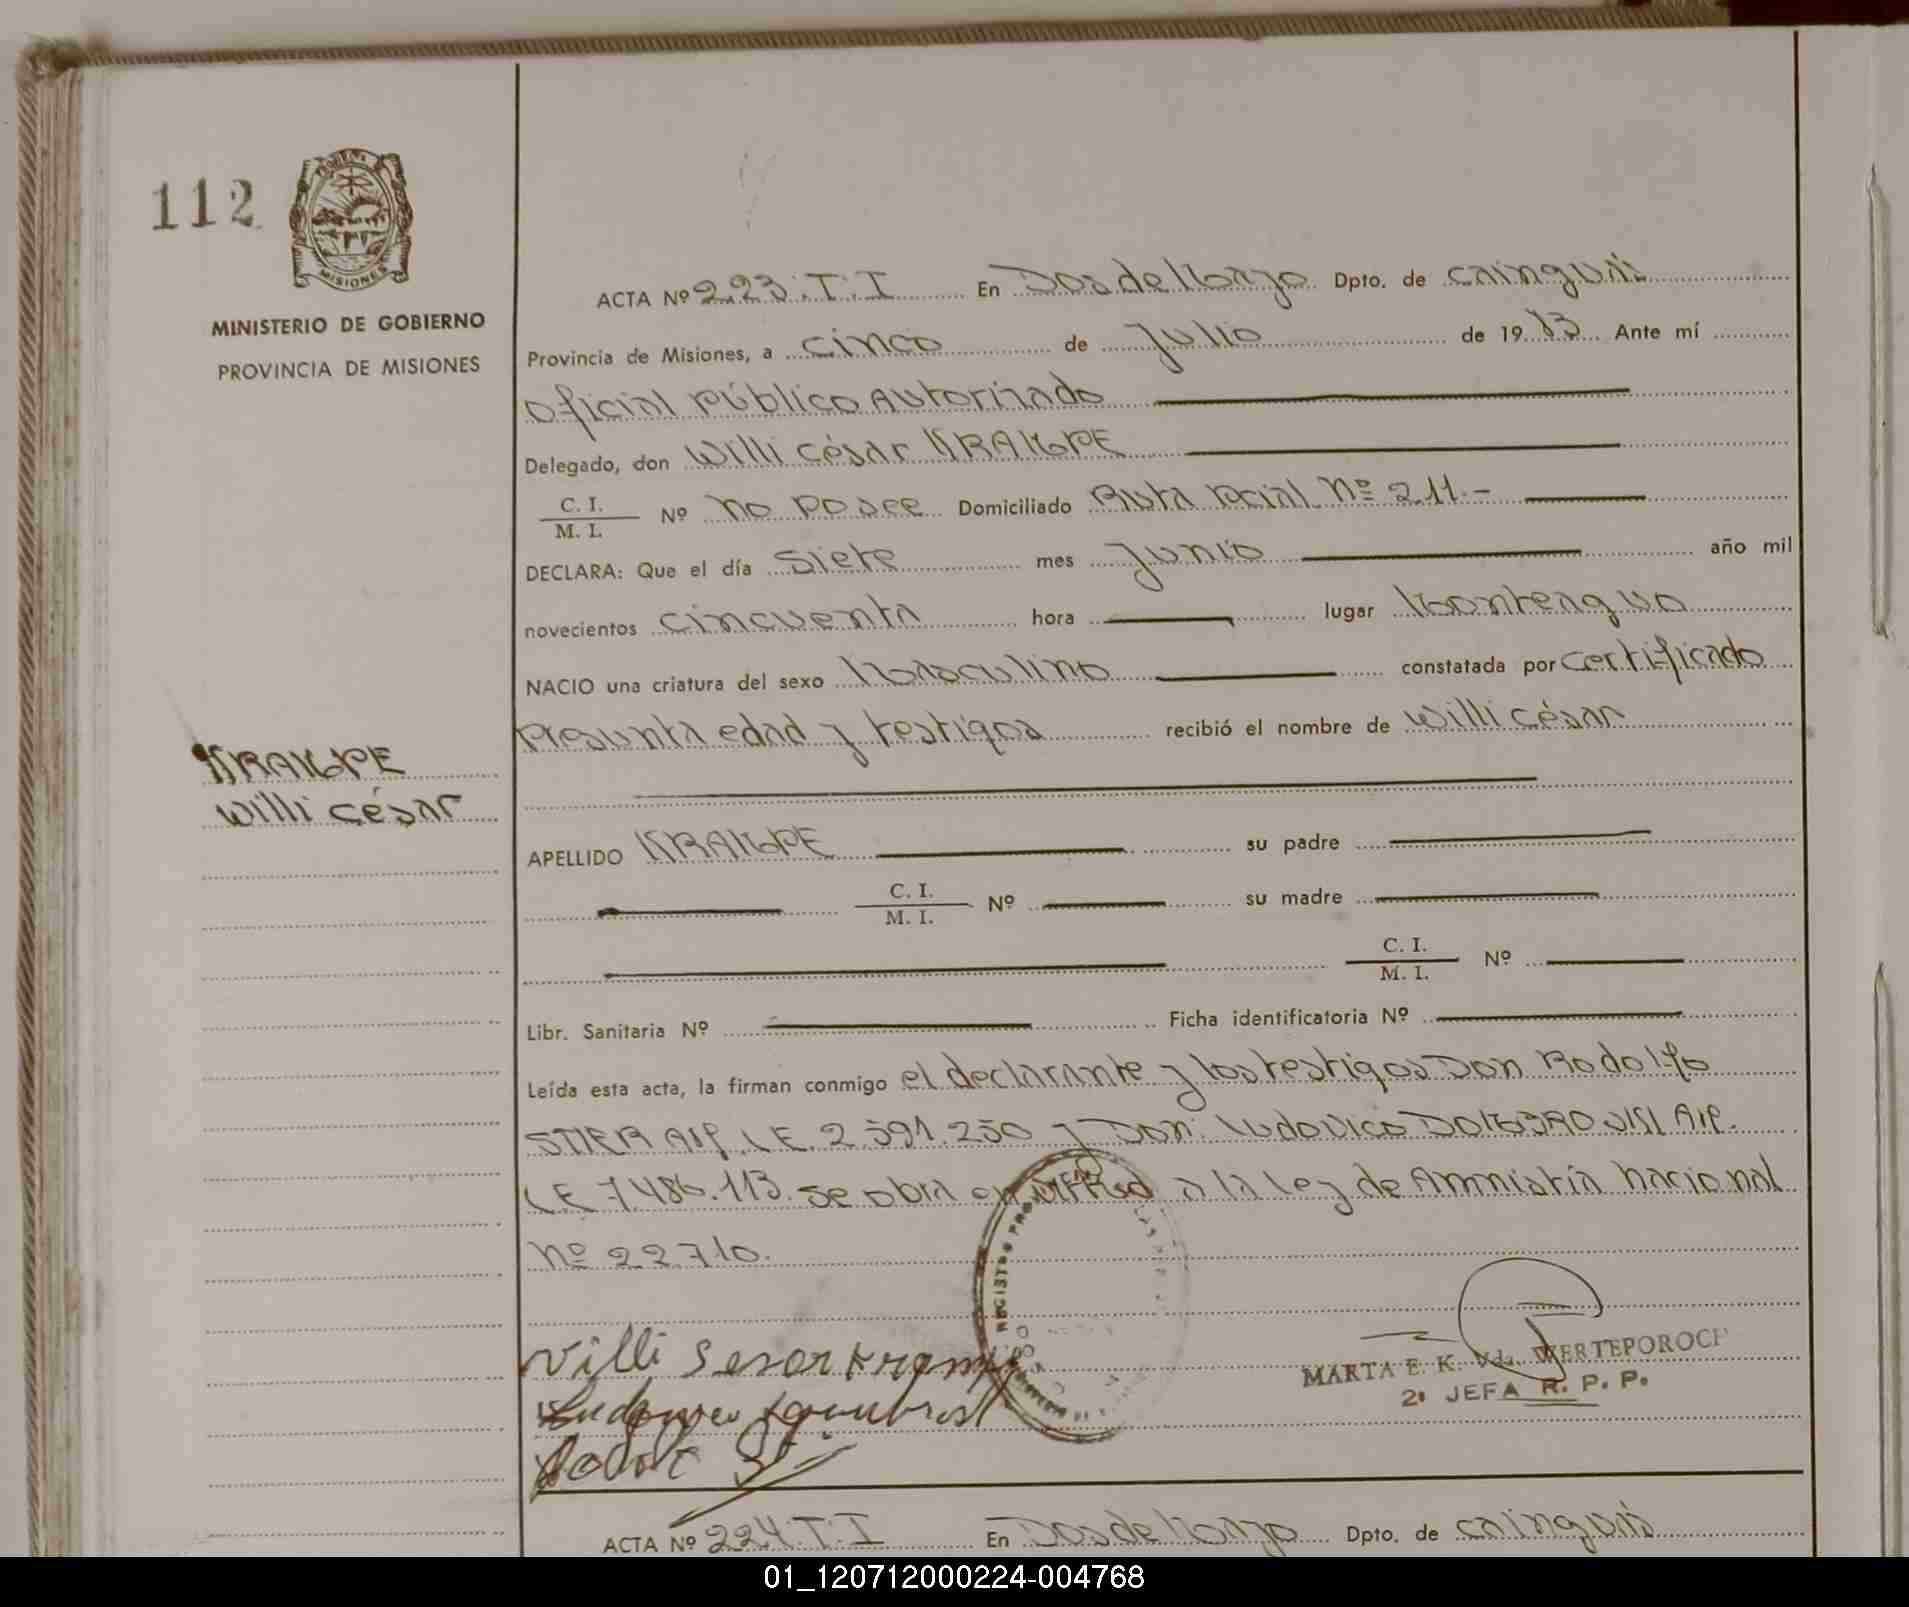 112
MISIONES
MINISTERIO DE GOBIERNO
PROVINCIA DE MISIONES
ACTA Nº 223.T.I En Dos de Mayo Dpto. de Cainguás
Provincia de Misiones, a cinco de Julio de 1983 Ante mí
Oficial Público Autorizado
Delegado, don Willi César KRAMPE
C. I.
M. I. Nº no posee Domiciliado Ruta Pcial. Nº 211.-
DECLARA: Que el día siete mes Junio año mil
novecientos cincuenta hora lugar Monteagudo
NACIO una criatura del sexo Masculino constatada por certificado
presunta edad y testigos recibió el nombre de Willi César
KRAMPE
Willi César
APELLIDO KRAMPE su padre
C. I.
M. I. Nº su madre
C. I.
M. I. Nº
Libr. Sanitaria Nº Ficha identificatoria Nº
Leída esta acta, la firman conmigo el declarante y los testigos Don Rodolfo
STIER Arg. L.E. 2.591.250 y Don: Ludovico Arg.
L.E 7.486.113. se obra en a la Ley de Amnistía Nacional
Nº 22.710.
Willi Sesar Krampe
MARTA E. K. Vda. WERTEPOROCH
2ª JEFA R. P. P.
ACTA Nº 224.T.I En Dos de Mayo Dpto. de Cainguás
01_120712000224-004768